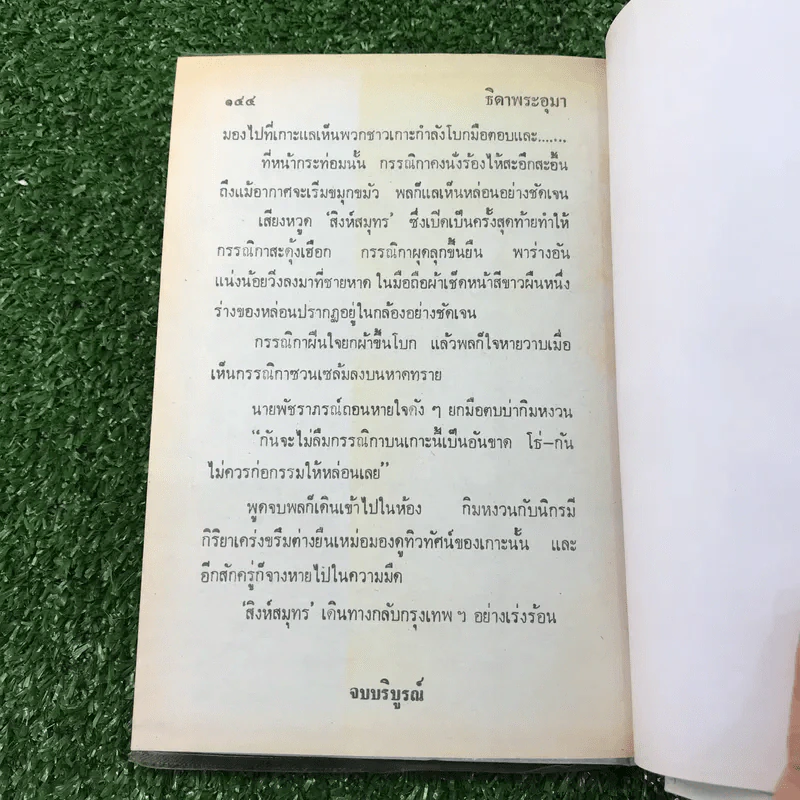 ๑๔๔ ธิดาพระอุมา
มองไปที่เกาะแลเห็นพวกชาวเกาะกำลังโบกมือตอบและ.......
ที่หน้ากระท่อมนั้น กรรณิกาคงนั่งร้องไห้สะอึกสะอื้น
ถึงแม้อากาศจะเริ่มขมุกขมัว พลก็แลเห็นหล่อนอย่างชัดเจน
เสียงหวูด ‘สิงห์สมุทร’ ซึ่งเปิดเป็นครั้งสุดท้ายทำให้
กรรณิกาสะดุ้งเฮือก กรรณิกาผุดลุกขึ้นยืน พาร่างอัน
แน่งน้อยวิ่งลงมาที่ชายหาด ในมือถือผ้าเช็ดหน้าสีขาวผืนหนึ่ง
ร่างของหล่อนปรากฏอยู่ในกล้องอย่างชัดเจน
กรรณิกาฝืนใจยกผ้าขึ้นโบก แล้วพลก็ใจหายวาบเมื่อ
เห็นกรรณิกาซวนเซล้มลงบนหาดทราย
นายพัชราภรณ์ถอนหายใจดัง ๆ ยกมือตบบ่ากิมหงวน
“กันจะไม่ลืมกรรณิกาบนเกาะนี้เป็นอันขาด โธ่–กัน
ไม่ควรก่อกรรมให้หล่อนเลย”
พูดจบพลก็เดินเข้าไปในห้อง กิมหงวนกับนิกรมี
กิริยาเคร่งขรึมต่างยืนเหม่อมองดูทิวทัศน์ของเกาะนั้น และ
อีกสักครู่ก็จางหายไปในความมืด
‘สิงห์สมุทร’ เดินทางกลับกรุงเทพ ฯ อย่างเร่งร้อน
จบบริบูรณ์